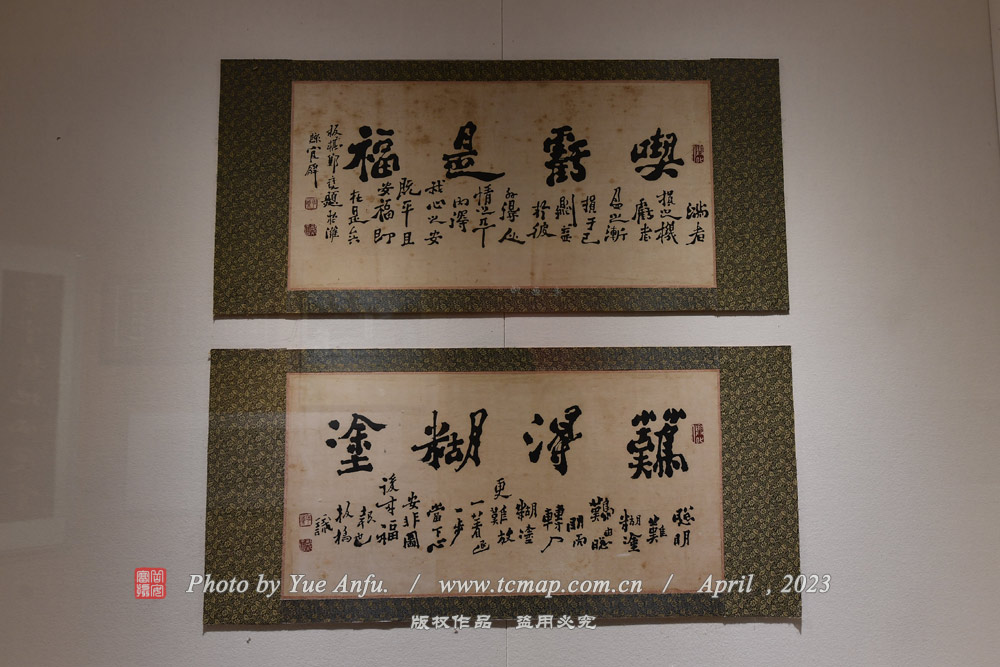 喫虧是福
滿者
損之機
虧者
盈之漸
損于己
則益
於彼
外得人
情之平
內得
我心之安
既平且
安福即
在是矣
板橋鄭燮題於濰
縣官廨
難得糊塗
聰明
難
糊塗
難由聰
明而
轉入
糊塗
更難放
一著退
一步
當下心
安非圖
後來福
報也
板橋
識
Photo by Yue Anfu. / www.tcmap.com.cn / April , 2023
版权作品 盗用必究